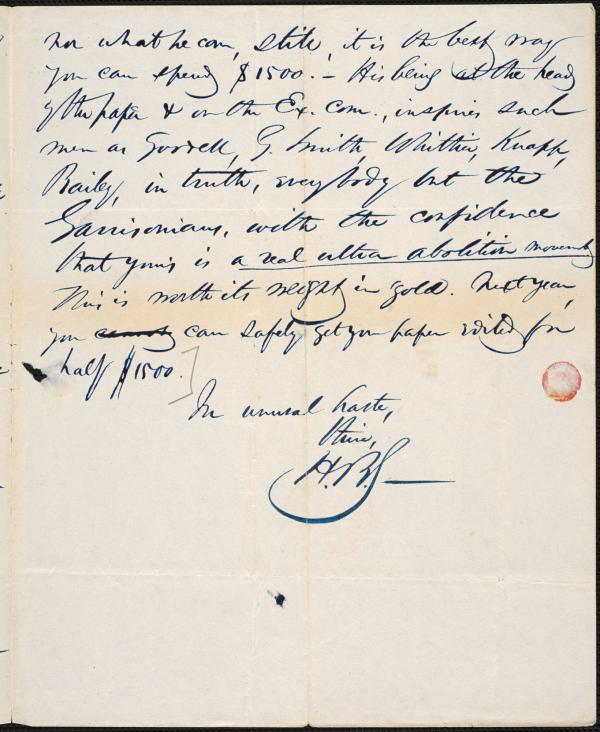 nor what he can, still, it is the best way
you can spend $1500. – His being at the head
of the paper & on the Ex. com., inspires such
men as Goodell, G. Smith, Whittier, Knapp,
Baily, in truth, everybody but the
Garrisonians, with the confidence
that yours is a real ultra abolition movement
This is worth its weight in gold. Next year,
you can safely get your paper edited for
half $1500.
In unusual haste,
Thine,
H.B.S.